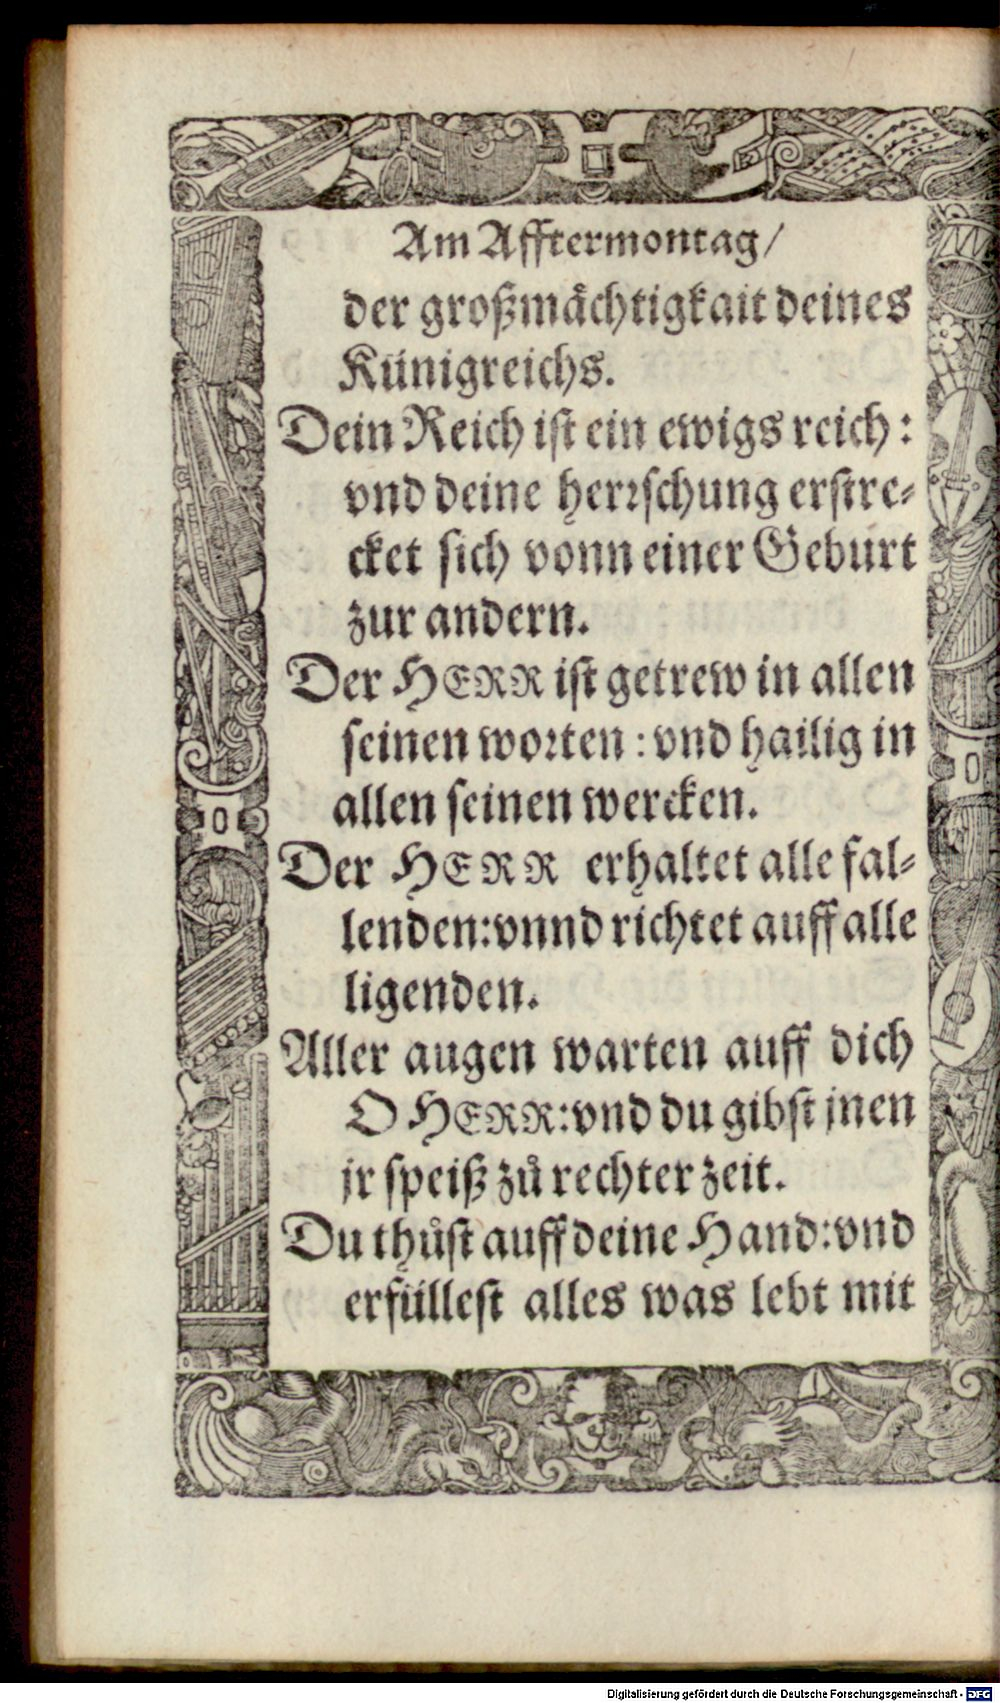 Am Afftermontag/
der großmächtigkait deines
Künigreichs.
Dein Reich ist ein ewigs reich:
vnd deine herrschung erstre-
cket sich vonn einer Geburt
zur andern.
Der HERR ist getrew in allen
seinen worten: vnd hailig in
allen seinen wercken.
Der HERR erhaltet alle fal-
lenden: vnnd richtet auff alle
ligenden.
Aller augen warten auff dich
O HERR: vnd du gibst jnen
jr speiß zů rechter zeit.
Du thůst auff deine Hand: vnd
erfüllest alles was lebt mit
Digitalisierung gefördert durch die Deutsche Forschungsgemeinschaft - DFG